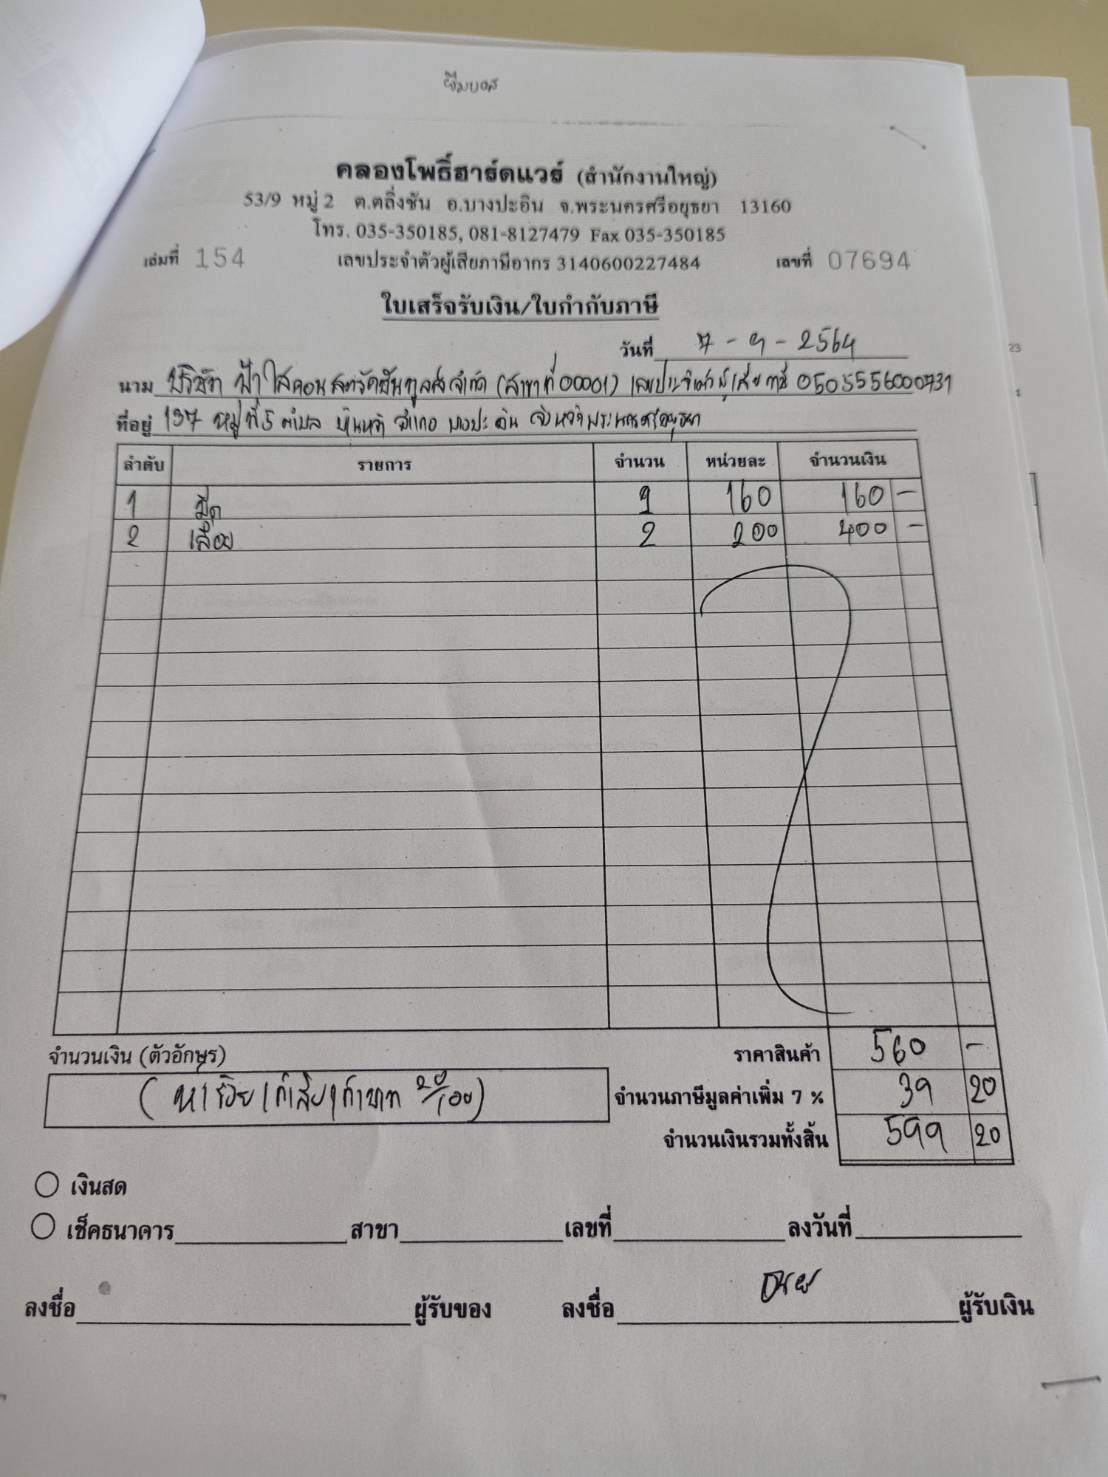 คลองโพธิ์ฮาร์ดแวร์ (สำนักงานใหญ่)
53/9 หมู่ 2 ต.ตลิ่งชัน อ.บางปะอิน จ.พระนครศรีอยุธยา 13160
โทร. 035-350185, 081-8127479 Fax 035-350185
เล่มที่ 154 เลขประจำตัวผู้เสียภาษีอากร 3140600227484 เลขที่ 07694
ใบเสร็จรับเงิน/ใบกำกับภาษี
วันที่ 7-9-2564
นาม บริษัท ฟ้าใสคอนสตรัคชั่น จำกัด (สาขาที่ 00001) เลขประจำตัวผู้เสียภาษี 0505556000731
ที่อยู่ 137 หมู่ที่ 5 ตำบล อำเภอ บางปะอิน จังหวัดพระนครศรีอยุธยา
ลำดับ รายการ จำนวน หน่วยละ จำนวนเงิน
1 มีด 1 160 160 -
2 เลื่อย 2 200 400 -
จำนวนเงิน (ตัวอักษร) ราคาสินค้า 560 -
(ห้าร้อยเก้าสิบเก้าบาท 20/100) จำนวนภาษีมูลค่าเพิ่ม 7 % 39 20
จำนวนเงินรวมทั้งสิ้น 599 20
เงินสด
เช็คธนาคาร สาขา เลขที่ ลงวันที่
ลงชื่อ ผู้รับของ ลงชื่อ ผู้รับเงิน
23